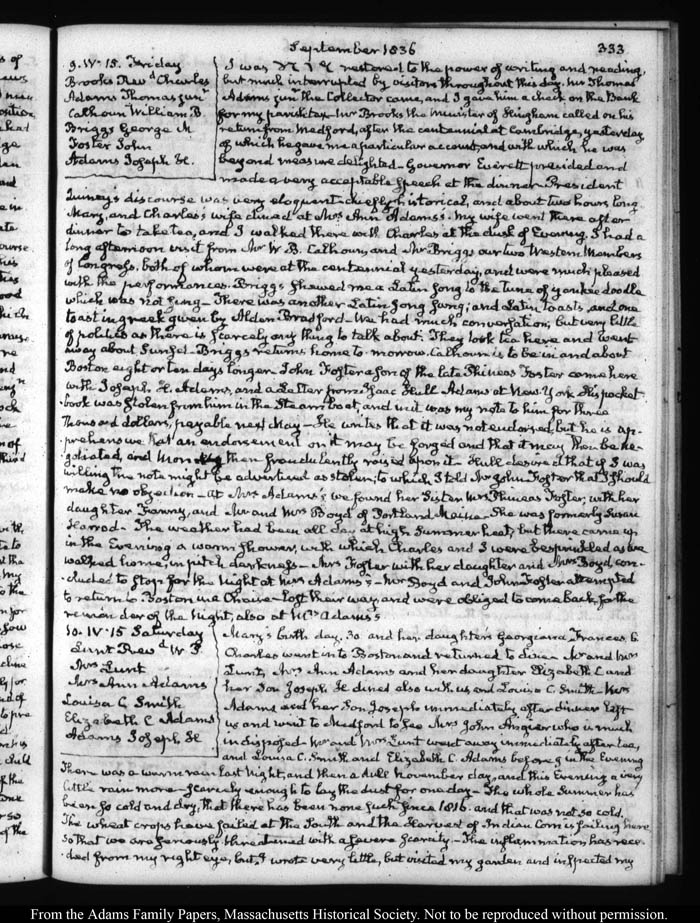 September 1836 333
9. IV. 15. Friday
Brooks Revd Charles
Adams Thomas junr
Calhoun William B.
Briggs George N
Foster John
Adams Joseph H.
I was restored to the power of writing and reading,
but much interrupted by visitors throughout this day. Mr Thomas
Adams junr the Collector came, and I gave him a check on the Bank
for my parish tax. Mr Brooks the Minister of Hingham called on his
return from Medford, after the centennial at Cambridge, yesterday
of which he gave me a particular account, and with which he was
beyond measure delighted. Governor Everett presided and
made a very acceptable speech at the dinner. President
Quincy's discourse was very eloquent chiefly historical, and about two hours long.
Mary, and Charles's wife dined at Mrs Ann Adams's. My wife went there after
dinner to take tea, and I walked there with Charles at the dusk of Evening. I had a
long afternoon visit from Mr W. B. Calhoun, and Mr Briggs our two Western Members
of Congress, both of whom were at the centennial yesterday, and were much pleased
with the performances. Briggs shewed me a Latin song to the tune of yankee doodle
which was not sung. There was another Latin song sung; and Latin toasts, and one
toast in greek given by Alden Bradford. We had much conversation, but very little
of politics as there is scarcely any thing to talk about. They took tea here and went
away about Sunset. Briggs returns home to morrow. Calhoun is to be in and about
Boston eight or ten days longer. John Foster a son of the late Phineas Foster came here
with Joseph H. Adams, and a Letter from Isaac Hull Adams at New-York. His pocket
book was stolen from him in the Steam boat, and in it was my note to him for three
thousand dollars, payable next May. He writes that it was not endorsed, but he is ap-
prehensive that an endorsement on it may be forged and that it may then be ne-
gotiated, and Money then fraudulently raised upon it. Hull desired that if I was
willing the note might be advertised as stolen; to which I told Mr John Foster that I should
make no objection. At Mrs Adams's we found her Sister Mrs Phineas Foster, with her
daughter Fanny, and Mr and Mrs Boyd of Portland Maine. She was formerly Susan
Harrod. The weather had been all day at high Summer heat, but there came up
in the Evening a warm shower, with which Charles and I were besprinkled as we
walked home, in pitch darkness. Mrs Foster with her daughter and Mrs Boyd, con-
cluded to stop for the Night at Mrs Adams's. Mr Boyd and John Foster attempted
to return to Boston in a Chaise. lost their way, and were obliged to come back, for the
remainder of the Night, also at Mrs Adams's
10. IV. 15 Saturday
Lunt Revd W P
Mrs Lunt
Mrs Ann Adams
Louisa C. Smith
Elizabeth C Adams
Adams Joseph H.
Mary's birth day. 30 and her daughter's Georgiana Frances. 6
Charles went into Boston and returned to dine. Mr and Mrs
Lunt, Mrs Ann Adams and her daughter Elizabeth C and
her Son Joseph H. dined also with us, and Louisa C. Smith. Mrs
Adams and her Son Joseph immediately after dinner left
us and went to Medford to see Mrs John Angier who is much
indisposed. Mr and Mrs Lunt went away immediately after tea,
and Louisa C. Smith and Elizabeth C. Adams before 9 in the Evening
There was a warm rain last Night, and then a dull November day, and this Evening a very
little rain more. Scarcely enough to lay the dust for one day. The whole Summer has
been so cold and dry, that there has been none such since 1816. and that was not so cold.
The wheat crops have failed at the South and the Harvest of Indian Corn is failing here
so that we are seriously threatened with a severe scarcity. The inflammation has rece-
ded from my right eye, but I wrote very little, but visited my garden and inspected my
From the Adams Family Papers, Massachusetts Historical Society. Not to be reproduced without permission.